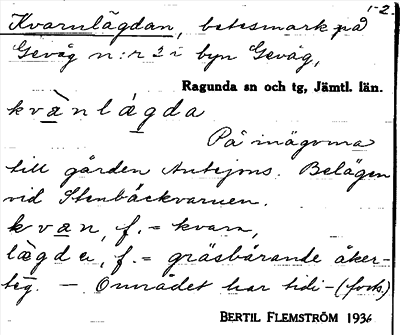 1-2.
Kvarnlägdan, betesmark på
Gevåg n:r 2 i byn Gevåg,
Ragunda sn och tg, Jämtl. län.
kvä̀nlágda
På inägorna
till gården Antejons. Belägen
vid Stenbäckvarnen.
kvæn, f. = kvarn,
lägda, f. = gräsbärande åker-
teg. — Området har tidi- (forts)
BERTIL FLEMSTRÖM 1936